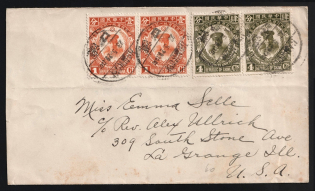 Miss Emma Selle
c/o Rev. Alex Ullrich
309 South Stone Ave
La Grange Ill.
U. S. A.